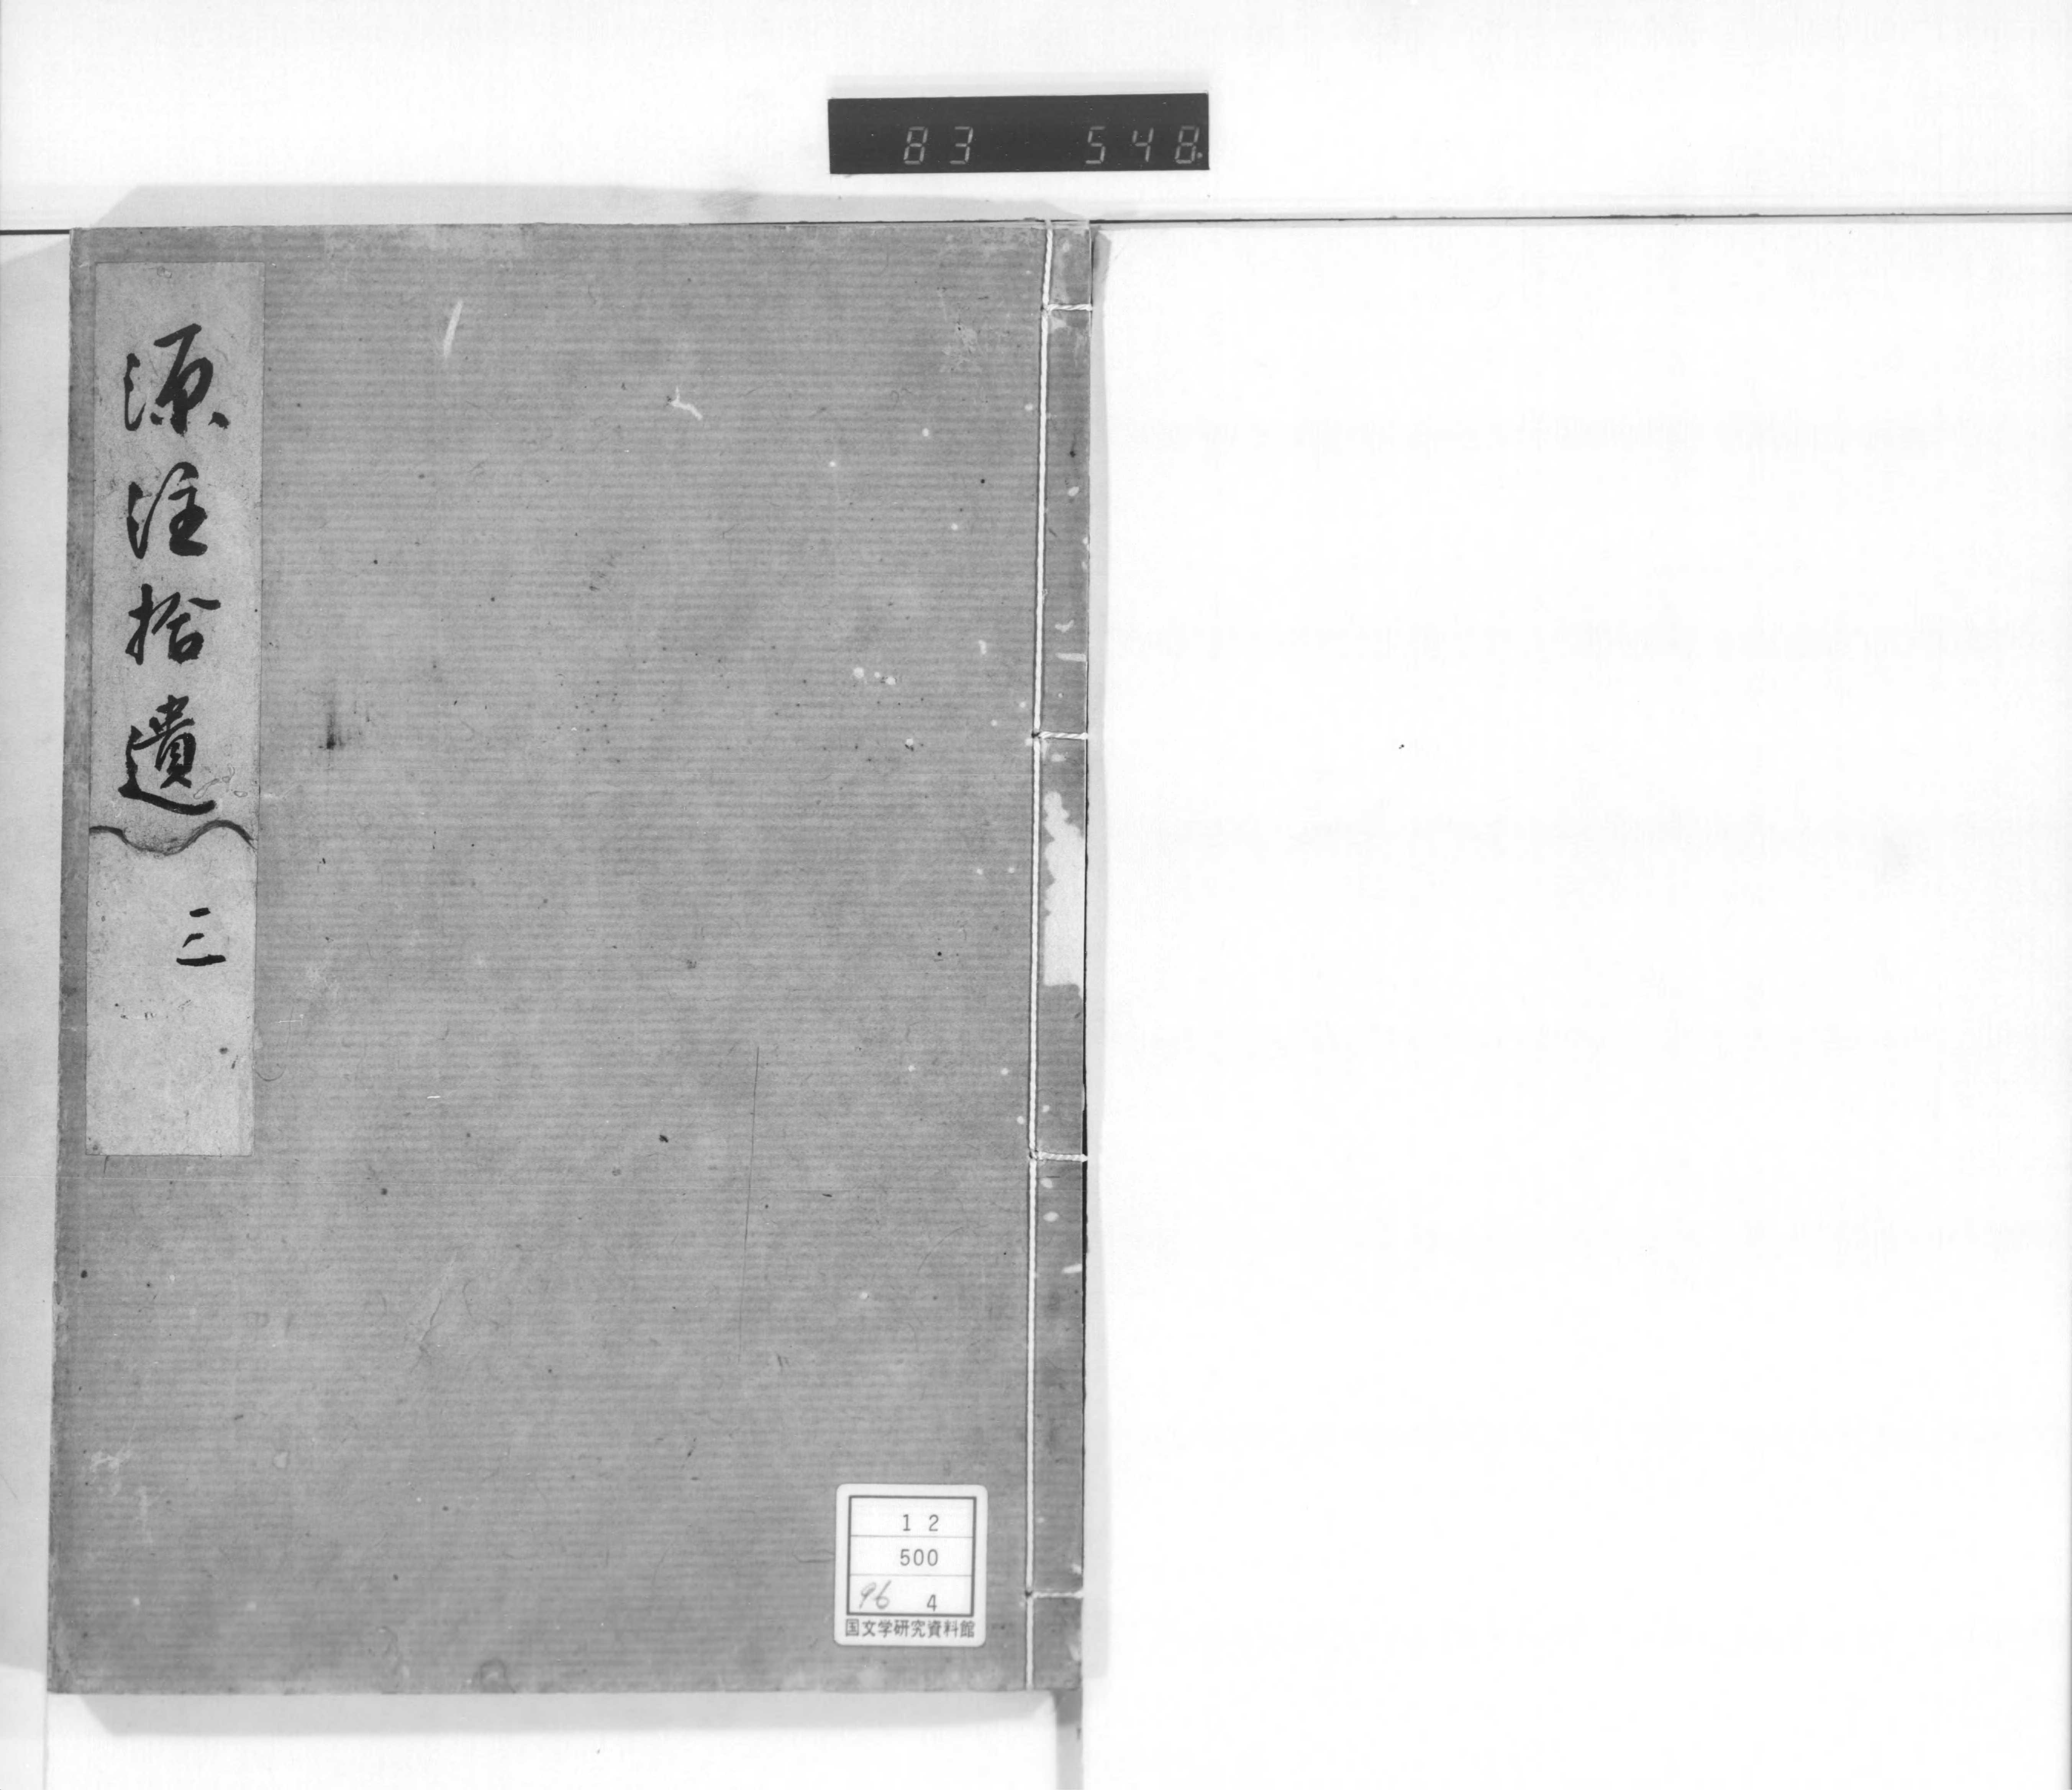 83 548.
源注拾遺
三
12
500
96 4
国文学研究資料館